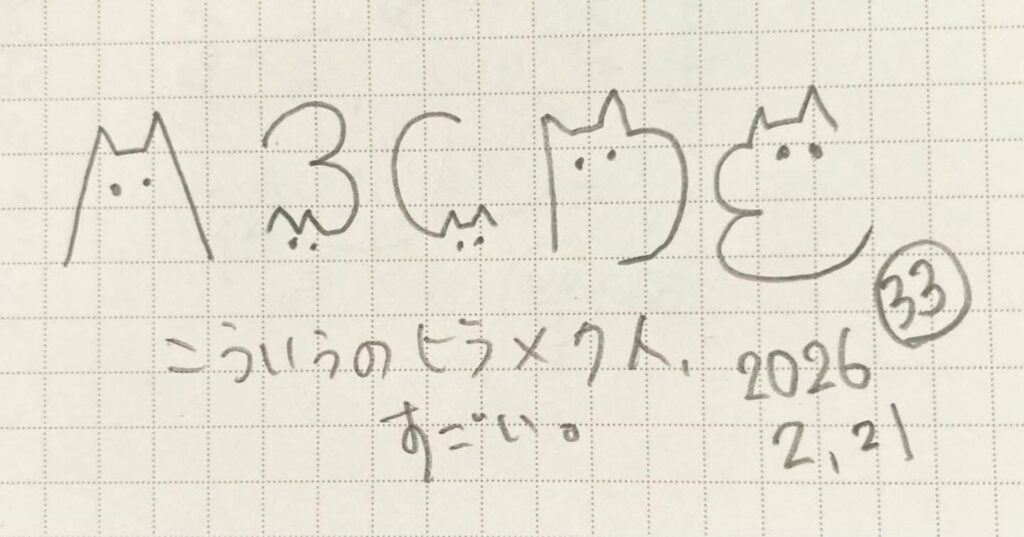 ABCDE
こういうのヒラメク人、
すごい。
33
2026
2,21